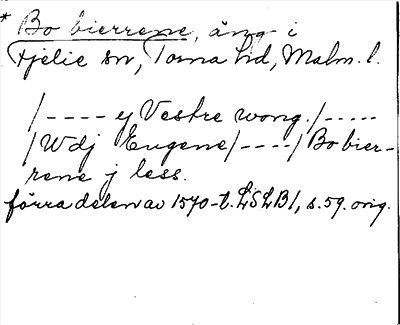 * Bo bierrene, äng i
Fjelie sn, Torna hd, Malm. l.
/ - - - - ej Vestre wong. / - - - - -
/ Wdj Eugene / - - - - / Bo bier-
rene j less.
förra delen av 1570-t. LSLB 1, s. 59. orig.